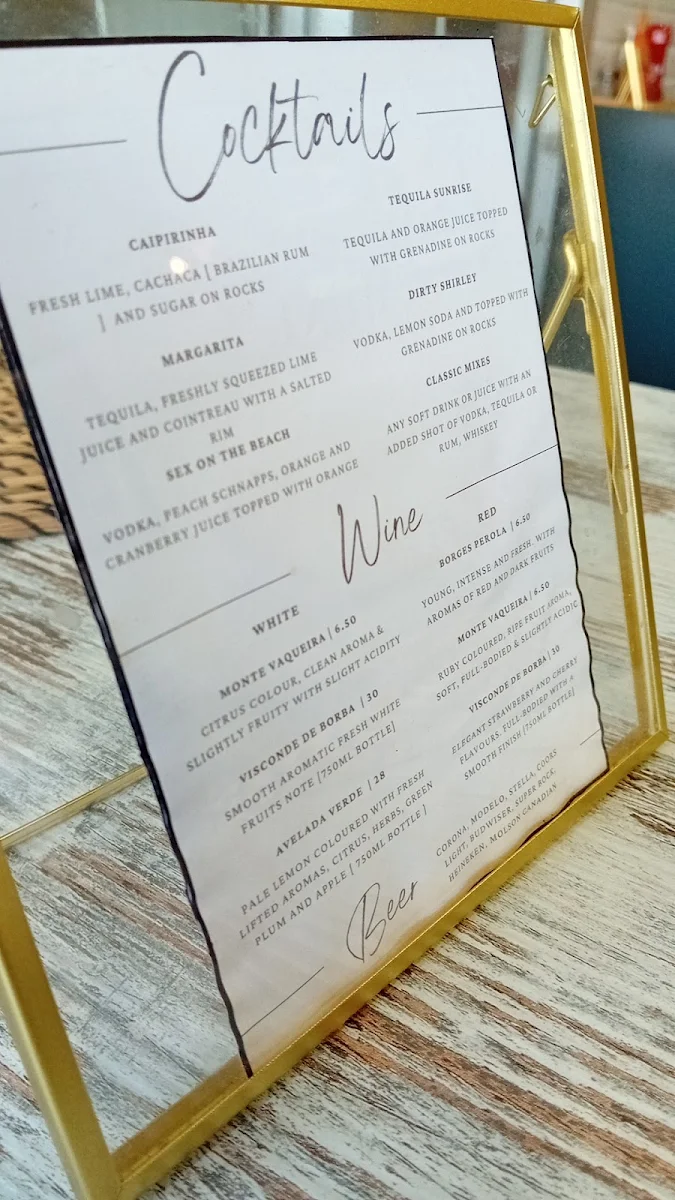 Cocktails
CAIPIRINHA
FRESH LIME, CACHACA [ BRAZILIAN RUM
] AND SUGAR ON ROCKS
MARGARITA
TEQUILA, FRESHLY SQUEEZED LIME
JUICE AND COINTREAU WITH A SALTED
RIM
SEX ON THE BEACH
VODKA, PEACH SCHNAPPS, ORANGE AND
CRANBERRY JUICE TOPPED WITH ORANGE
TEQUILA SUNRISE
TEQUILA AND ORANGE JUICE TOPPED
WITH GRENADINE ON ROCKS
DIRTY SHIRLEY
VODKA, LEMON SODA AND TOPPED WITH
GRENADINE ON ROCKS
CLASSIC MIXES
ANY SOFT DRINK OR JUICE WITH AN
ADDED SHOT OF VODKA, TEQUILA OR
RUM, WHISKEY
Wine
WHITE
MONTE VAQUEIRA | 6.50
CITRUS COLOUR, CLEAN AROMA &
SLIGHTLY FRUITY WITH SLIGHT ACIDITY
VISCONDE DE BORBA | 30
SMOOTH AROMATIC FRESH WHITE
FRUITS NOTE [750ML BOTTLE]
AVELADA VERDE | 28
PALE LEMON COLOURED WITH FRESH
LIFTED AROMAS, CITRUS, HERBS, GREEN
PLUM AND APPLE [ 750ML BOTTLE ]
RED
BORGES PEROLA | 6.50
YOUNG, INTENSE AND FRESH. WITH
AROMAS OF RED AND DARK FRUITS
MONTE VAQUEIRA | 6.50
RUBY COLOURED, RIPE FRUIT AROMA,
SOFT, FULL-BODIED & SLIGHTLY ACIDIC
VISCONDE DE BORBA | 30
ELEGANT STRAWBERRY AND CHERRY
FLAVOURS. FULL-BODIED WITH A
SMOOTH FINISH [750ML BOTTLE]
Beer
CORONA, MODELO, STELLA, COORS
LIGHT, BUDWISER, SUPER BOCK,
HEINEKEN, MOLSON CANADIAN